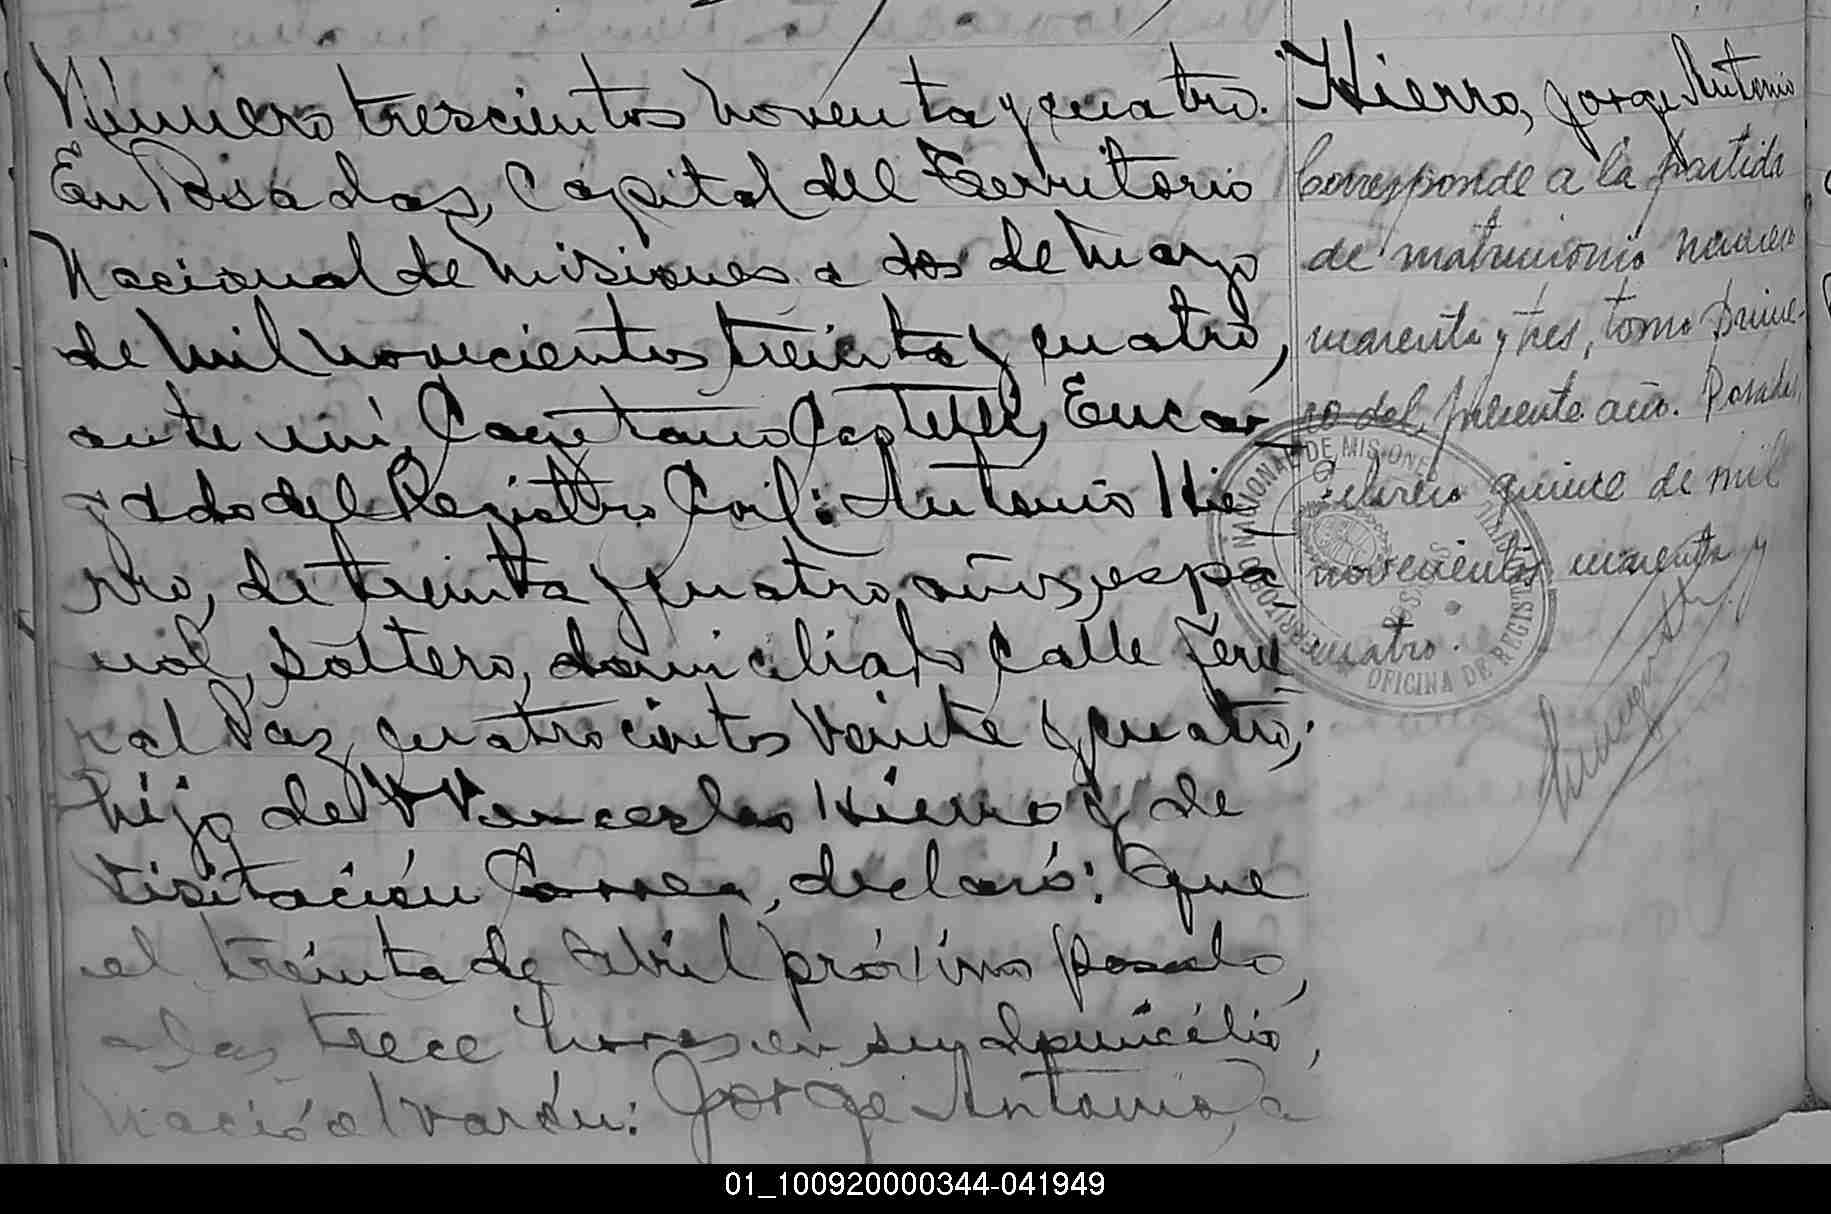 Número trescientos noventa y cuatro.
En Posadas, Capital del Territorio
Nacional de Misiones a dos de Mayo
de mil novecientos treinta y cuatro,
ante mí, Cayetano Castelli, Encar
gado del Registro Civil: Antonio Hie
rro, de treinta y cuatro años, espa
ñol, soltero, domiciliado calle Jene
ral Paz cuatrocientos veinte y cuatro;
hijo de Wenceslao Hierro y de
Visitación Correa, declaró: Que
el treinta de Abril próximo pasado,
a las trece horas en su domicilio,
nació el varón: Jorge Antonio, a
Hierro, Jorge Antonio
Corresponde a la partida
de matrimonio número
cuarenta y tres, tomo prime-
ro del presente año. Posadas,
febrero quince de mil
novecientos cuarenta y
cuatro.
NACIONAL DE MISIONES
OFICINA DE REGISTRO CIVIL
POSADAS
01_100920000344-041949